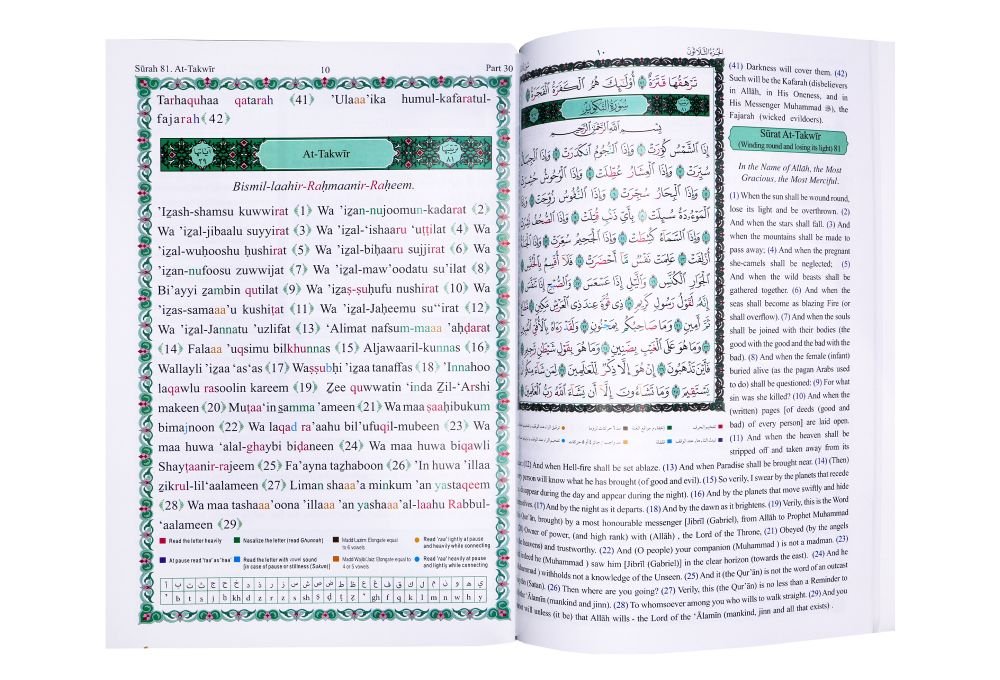 Sūrah 81. At-Takwīr 10 Part 30
Tarhaquhaa qatarah ﴾41﴿ 'Ulaaa'ika humul-kafaratul-
fajarah﴾42﴿
At-Takwīr
Bismil-laahir-Raḥmaanir-Raḥeem.
'Iẓash-shamsu kuwwirat ﴾1﴿ Wa 'iẓan-nujoomun-kadarat ﴾2﴿
Wa 'iẓal-jibaalu suyyirat ﴾3﴿ Wa 'iẓal-'ishaaru 'uṭṭilat ﴾4﴿ Wa
'iẓal-wuḥooshu ḥushirat ﴾5﴿ Wa 'iẓal-biḥaaru sujjirat ﴾6﴿ Wa
'iẓan-nufoosu zuwwijat ﴾7﴿ Wa 'iẓal-maw'oodatu su'ilat ﴾8﴿
Bi'ayyi ẓambin qutilat ﴾9﴿ Wa 'iẓaṣ-ṣuḥufu nushirat ﴾10﴿ Wa
'iẓas-samaaa'u kushiṭat ﴾11﴿ Wa 'iẓal-Jaḥeemu su''irat ﴾12﴿
Wa 'iẓal-Jannatu 'uzlifat ﴾13﴿ 'Alimat nafsum-maaa 'aḥḍarat
﴾14﴿ Falaaa 'uqsimu bilkhunnas ﴾15﴿ Aljawaaril-kunnas ﴾16﴿
Wallayli 'iẓaa 'as'as ﴾17﴿ Waṣṣubḥi 'iẓaa tanaffas ﴾18﴿ 'Innahoo
laqawlu rasoolin kareem ﴾19﴿ Ẓee quwwatin 'inda Ẓil-'Arshi
makeen ﴾20﴿ Muṭaa'in ṣamma 'ameen ﴾21﴿ Wa maa ṣaaḥibukum
bimajnoon ﴾22﴿ Wa laqad ra'aahu bil'ufuqil-mubeen ﴾23﴿ Wa
maa huwa 'alal-ghaybi biḍaneen ﴾24﴿ Wa maa huwa biqawli
Shayṭaanir-rajeem ﴾25﴿ Fa'ayna taẓhaboon ﴾26﴿ 'In huwa 'illaa
ẓikrul-lil'aalameen ﴾27﴿ Liman shaaa'a minkum 'an yastaqeem
﴾28﴿ Wa maa tashaaa'oona 'illaaa 'an yashaaa'al-laahu Rabbul-
'aalameen ﴾29﴿
Read the letter heavily Nasalize the letter (read Ghunnah) Madd Lazim: Elongate equal to 6 vowels Read 'raa' lightly at pause and heavily while connecting
At pause read 'taa' as 'haa' Read the letter with vowel sound [in case of pause or stillness (Sakve)] Read 'raa' heavily at pause and lightly while connecting
ا ب ت ث ج ح خ د ذ ر ز س ش ص ض ط ظ ع غ ف ق ك ل م ن و ه ي
الجزء الثلاثون ١٠
تَرْهَقُهَا قَتَرَةٌ أُوْلَٰئِكَ هُمُ الْكَفَرَةُ الْفَجَرَةُ
سورة التكوير
بِسْمِ اللَّهِ الرَّحْمَٰنِ الرَّحِيمِ
إِذَا الشَّمْسُ كُوِّرَتْ وَإِذَا النُّجُومُ انكَدَرَتْ وَإِذَا الْجِبَالُ
سُيِّرَتْ وَإِذَا الْعِشَارُ عُطِّلَتْ وَإِذَا الْوُحُوشُ
حُشِرَتْ وَإِذَا الْبِحَارُ سُجِّرَتْ وَإِذَا النُّفُوسُ زُوِّجَتْ وَإِذَا
الْمَوْءُودَةُ سُئِلَتْ بِأَيِّ ذَنبٍ قُتِلَتْ وَإِذَا الصُّحُفُ
وَإِذَا السَّمَاءُ كُشِطَتْ وَإِذَا الْجَحِيمُ سُعِّرَتْ وَإِذَا
أُزْلِفَتْ عَلِمَتْ نَفْسٌ مَّا أَحْضَرَتْ فَلَا أُقْسِمُ
الْجَوَارِ الْكُنَّسِ وَالَّيْلِ إِذَا عَسْعَسَ وَالصُّبْحِ إِذَا تَنَفَّسَ
إِنَّهُ لَقَوْلُ رَسُولٍ كَرِيمٍ ذِي قُوَّةٍ عِندَ ذِي الْعَرْشِ مَكِينٍ
ثَمَّ أَمِينٍ وَمَا صَاحِبُكُم بِمَجْنُونٍ وَلَقَدْ رَءَاهُ بِالْأُفُقِ
وَمَا هُوَ عَلَى الْغَيْبِ بِضَنِينٍ وَمَا هُوَ بِقَوْلِ شَيْطَٰنٍ رَّجِيمٍ
فَأَيْنَ تَذْهَبُونَ إِنْ هُوَ إِلَّا ذِكْرٌ لِّلْعَٰلَمِينَ لِمَن شَاءَ مِنكُمْ
يَسْتَقِيمَ وَمَا تَشَاءُونَ إِلَّا أَن يَشَاءَ اللَّهُ رَبُّ الْعَٰلَمِينَ
(41) Darkness will cover them. (42)
Such will be the Kafarah (disbelievers
in Allāh, in His Oneness, and in
His Messenger Muhammad ﷺ), the
Fajarah (wicked evildoers).
Sūrat At-Takwīr
(Winding round and losing its light) 81
In the Name of Allāh, the Most
Gracious, the Most Merciful.
(1) When the sun shall be wound round,
lose its light and be overthrown. (2)
And when the stars shall fall. (3) And
when the mountains shall be made to
pass away; (4) And when the pregnant
she-camels shall be neglected; (5)
And when the wild beasts shall be
gathered together. (6) And when the
seas shall become as blazing Fire (or
shall overflow). (7) And when the souls
shall be joined with their bodies (the
good with the good and the bad with the
bad). (8) And when the female (infant)
buried alive (as the pagan Arabs used
to do) shall be questioned: (9) For what
sin was she killed? (10) And when the
(written) pages [of deeds (good and
bad) of every person] are laid open.
(11) And when the heaven shall be
stripped off and taken away from its
(12) And when Hell-fire shall be set ablaze. (13) And when Paradise shall be brought near. (14) (Then)
person will know what he has brought (of good and evil). (15) So verily, I swear by the planets that recede
disappear during the day and appear during the night). (16) And by the planets that move swiftly and hide
(17) And by the night as it departs. (18) And by the dawn as it brightens. (19) Verily, this is the Word
Qur'ān, brought) by a most honourable messenger [Jibrīl (Gabriel), from Allāh to Prophet Muhammad
Owner of power, (and high rank) with (Allāh) , the Lord of the Throne, (21) Obeyed (by the angels
heavens) and trustworthy. (22) And (O people) your companion (Muhammad ) is not a madman. (23)
indeed he (Muhammad ) saw him [Jibrīl (Gabriel)] in the clear horizon (towards the east). (24) And he
(Muhammad ) withholds not a knowledge of the Unseen. (25) And it (the Qur'ān) is not the word of an outcast
(Satan). (26) Then where are you going? (27) Verily, this (the Qur'ān) is no less than a Reminder to
the 'Ālamīn (mankind and jinn). (28) To whomsoever among you who wills to walk straight. (29) And you
will unless (it be) that Allāh wills - the Lord of the 'Ālamīn (mankind, jinn and all that exists) .